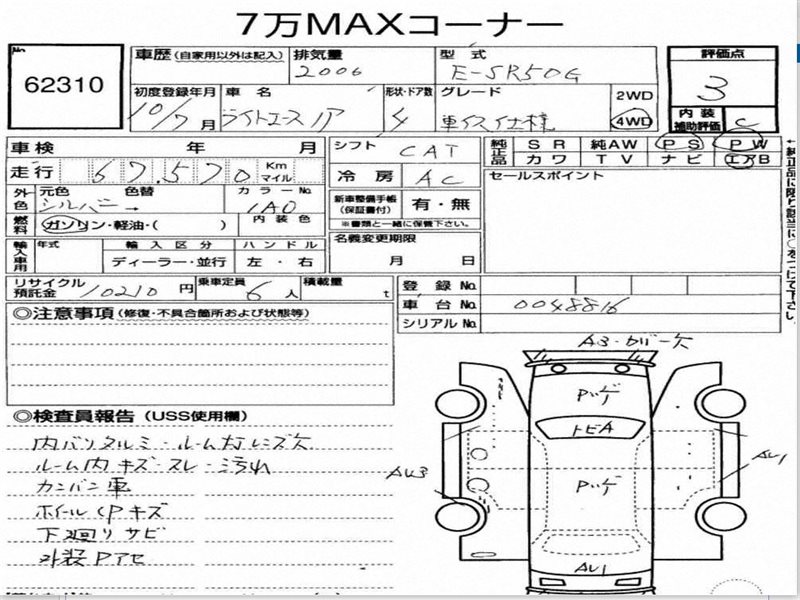 7万MAXコーナー
No.
62310
車歴(自家用以外は記入)
排気量
2000
型式
E-SR50G
評価点
3
初度登録年月
10/7月
車名
ライトエースノア
形状・ドア数
4
グレード
車イス仕様
2WD
4WD
内装補助評価
C
車検 年 月
シフト
CAT
純正品
SR 純AW PS PW
カワ TV ナビ エアB
走行 67,570 Km マイル
冷房
AC
セールスポイント
外色
元色 色替
シルバー →
カラーNo.
1A0
新車整備手帳(保証書付)
有・無
※書類と一緒に保管下さい。
燃料
ガソリン・軽油・( )
内装色
輸入車用
年式
輸入区分
ディーラー・並行
ハンドル
左・右
名義変更期限
月 日
リサイクル預託金 10210 円
乗車定員 6 人
積載量 t
登録No.
車台No. 0048816
シリアルNo.
◎注意事項(修復・不具合箇所および状態等)
◎検査員報告(USS使用欄)
ルーム内キズ・スレ・汚れ
カンバン車
ホイルCPキズ
下廻りサビ
外装Pアセ
A3・カバー欠
Pハゲ
トビA
Pハゲ
AU3
AU1
AU1